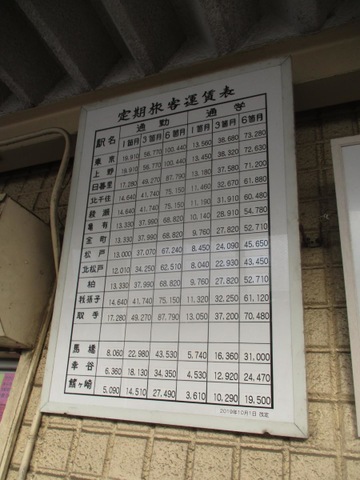 定期旅客運賃表
駅名 通勤 通学
1箇月 3箇月 6箇月 1箇月 3箇月 6箇月
東京 19,910 56,770 100,440 13,560 38,680 73,280
上野 19,910 56,770 100,440 13,450 38,320 72,630
日暮里 17,280 49,270 87,790 13,180 37,580 71,200
北千住 14,640 41,740 75,150 11,460 32,670 61,880
綾瀬 14,640 41,740 75,150 11,190 31,910 60,480
亀有 13,330 37,990 68,820 10,140 28,910 54,780
金町 13,330 37,990 68,820 9,760 27,820 52,710
松戸 13,000 37,070 67,240 8,450 24,090 45,650
北松戸 12,010 34,250 62,510 8,040 22,930 43,450
柏 13,330 37,990 68,820 9,760 27,820 52,710
我孫子 14,640 41,740 75,150 11,320 32,250 61,120
取手 17,280 49,270 87,790 13,050 37,200 70,480
馬橋 8,060 22,980 43,530 5,740 16,360 31,000
幸谷 6,360 18,130 34,350 4,530 12,920 24,470
鰭ヶ崎 5,090 14,510 27,490 3,610 10,290 19,500
2019年10月1日 改定